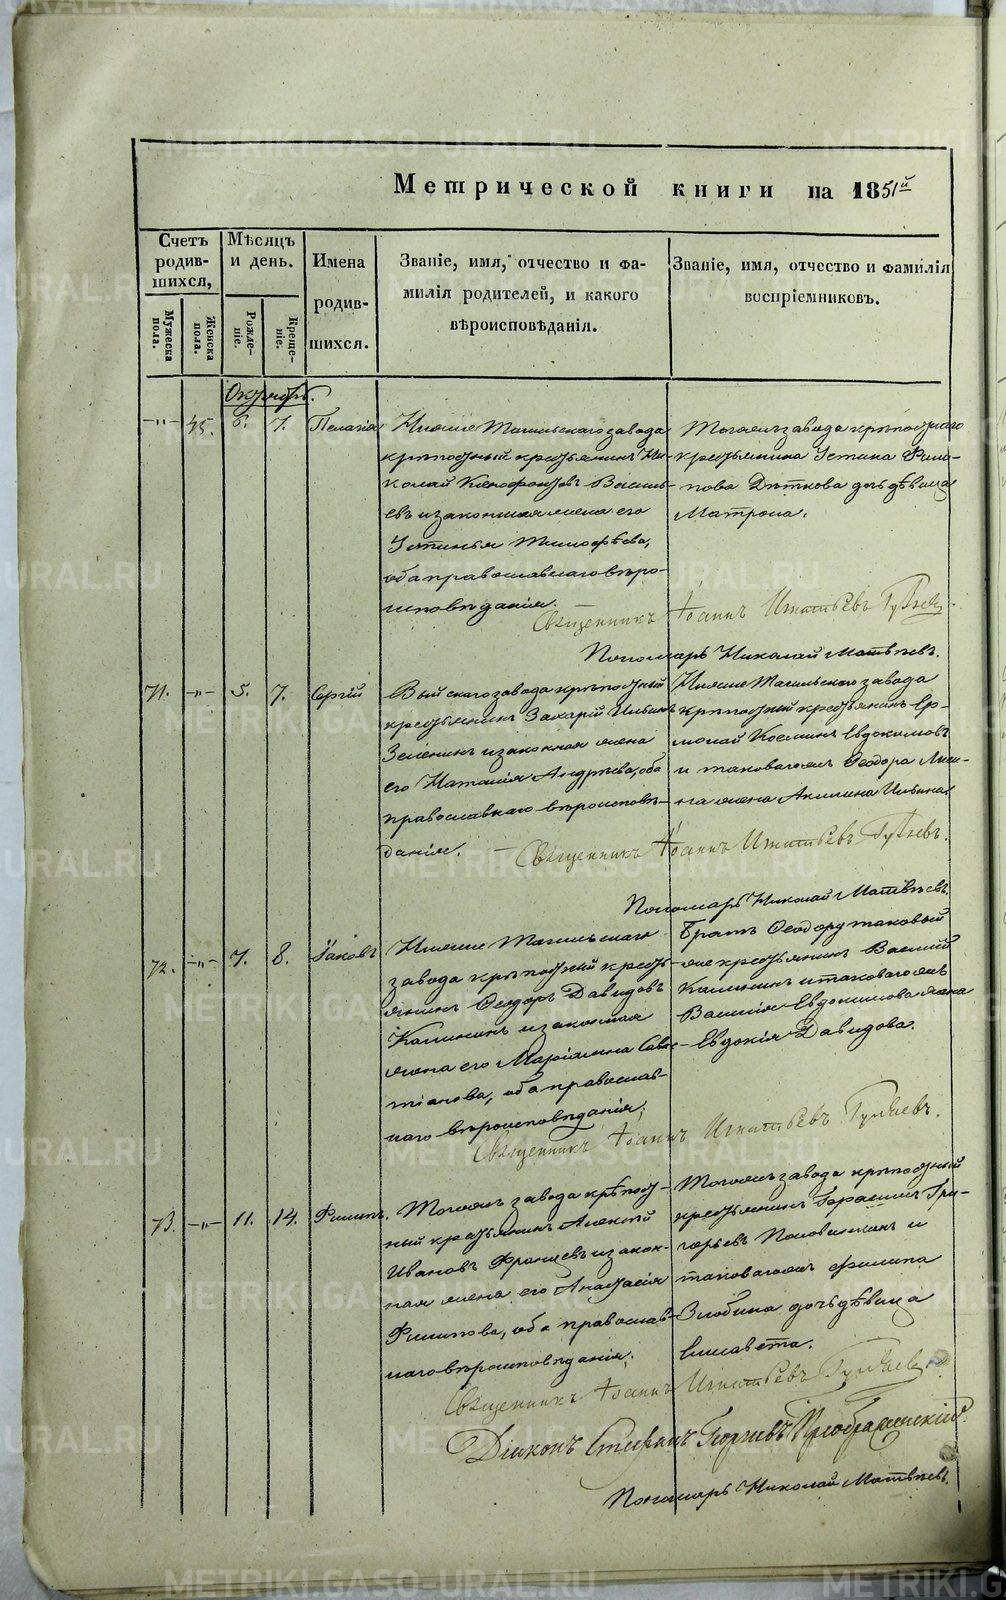 Метрической книги на 1851й
Счетъ родившихся,
Мужеска пола.
Женска пола.
Мѣсяцъ и день.
Рожденіе.
Крещеніе.
Имена родившихся.
Званіе, имя, отчество и фамилія родителей, и какого вѣроисповѣданія.
Званіе, имя, отчество и фамилія воспріемниковъ.
Октябрь.
—"— 45. 6. 7. Пелагія
Нижне Тагильскаго завода
крѣпостный крестьянинъ Ни-
колай Ксенофонтовъ Василь-
евъ и законная жена его
Устинья Тимофѣева,
оба православнаго вѣро-
исповѣданія.
Тогожъ завода крѣпостнаго
крестьянина Устина Фили-
пова Дѣткова дочь дѣвица
Матрона.
Священникъ Іоаннъ Игнатьевъ
Пономарь Николай Матвѣевъ.
71. —"— 5. 7. Сергій
Выйскаго завода крѣпостный
крестьянинъ Захарій Ильинъ
Зеленинъ и законная жена
его Наталія Андрѣева, оба
православнаго вѣроисповѣ-
данія.
Нижне Тагильскаго завода
крѣпостный крестьянинъ Ер-
молай Козминъ Евдокимовъ
и таковагожъ Ѳеодора
жена Акилина Ильина.
Священникъ Іоаннъ Игнатьевъ
Пономарь Николай Матвѣевъ.
72. —"— 7. 8. Іаковъ
Нижне Тагильскаго
завода крѣпостный кресть-
янинъ Ѳеодоръ Давидовъ
Калининъ и законная
жена его Маріамна Савас-
тіанова, оба православ-
наго вѣроисповѣданія.
Братъ Ѳеодору таковый
же крестьянинъ Василій
Калининъ и таковагожъ
Василія Евдокимова жена
Евдокія Давидова.
Священникъ Іоаннъ Игнатьевъ
73. —"— 11. 14. Филипъ.
Тогожъ завода крѣпост-
ный крестьянинъ Алексѣй
Ивановъ Францевъ и закон-
ная жена его Анастасія
Филипова, оба православ-
наго вѣроисповѣданія.
Тогожъ завода крѣпостный
крестьянинъ Герасимъ Гри-
горьевъ Половинкинъ и
таковагожъ Филипа
Злобина дочь дѣвица
Елисавета.
Священникъ Іоаннъ Игнатьевъ
Діаконъ Стефанъ Георгіевъ Преображенскій.
Пономарь Николай Матвѣевъ.
METRIKI.GASO-URAL.RU